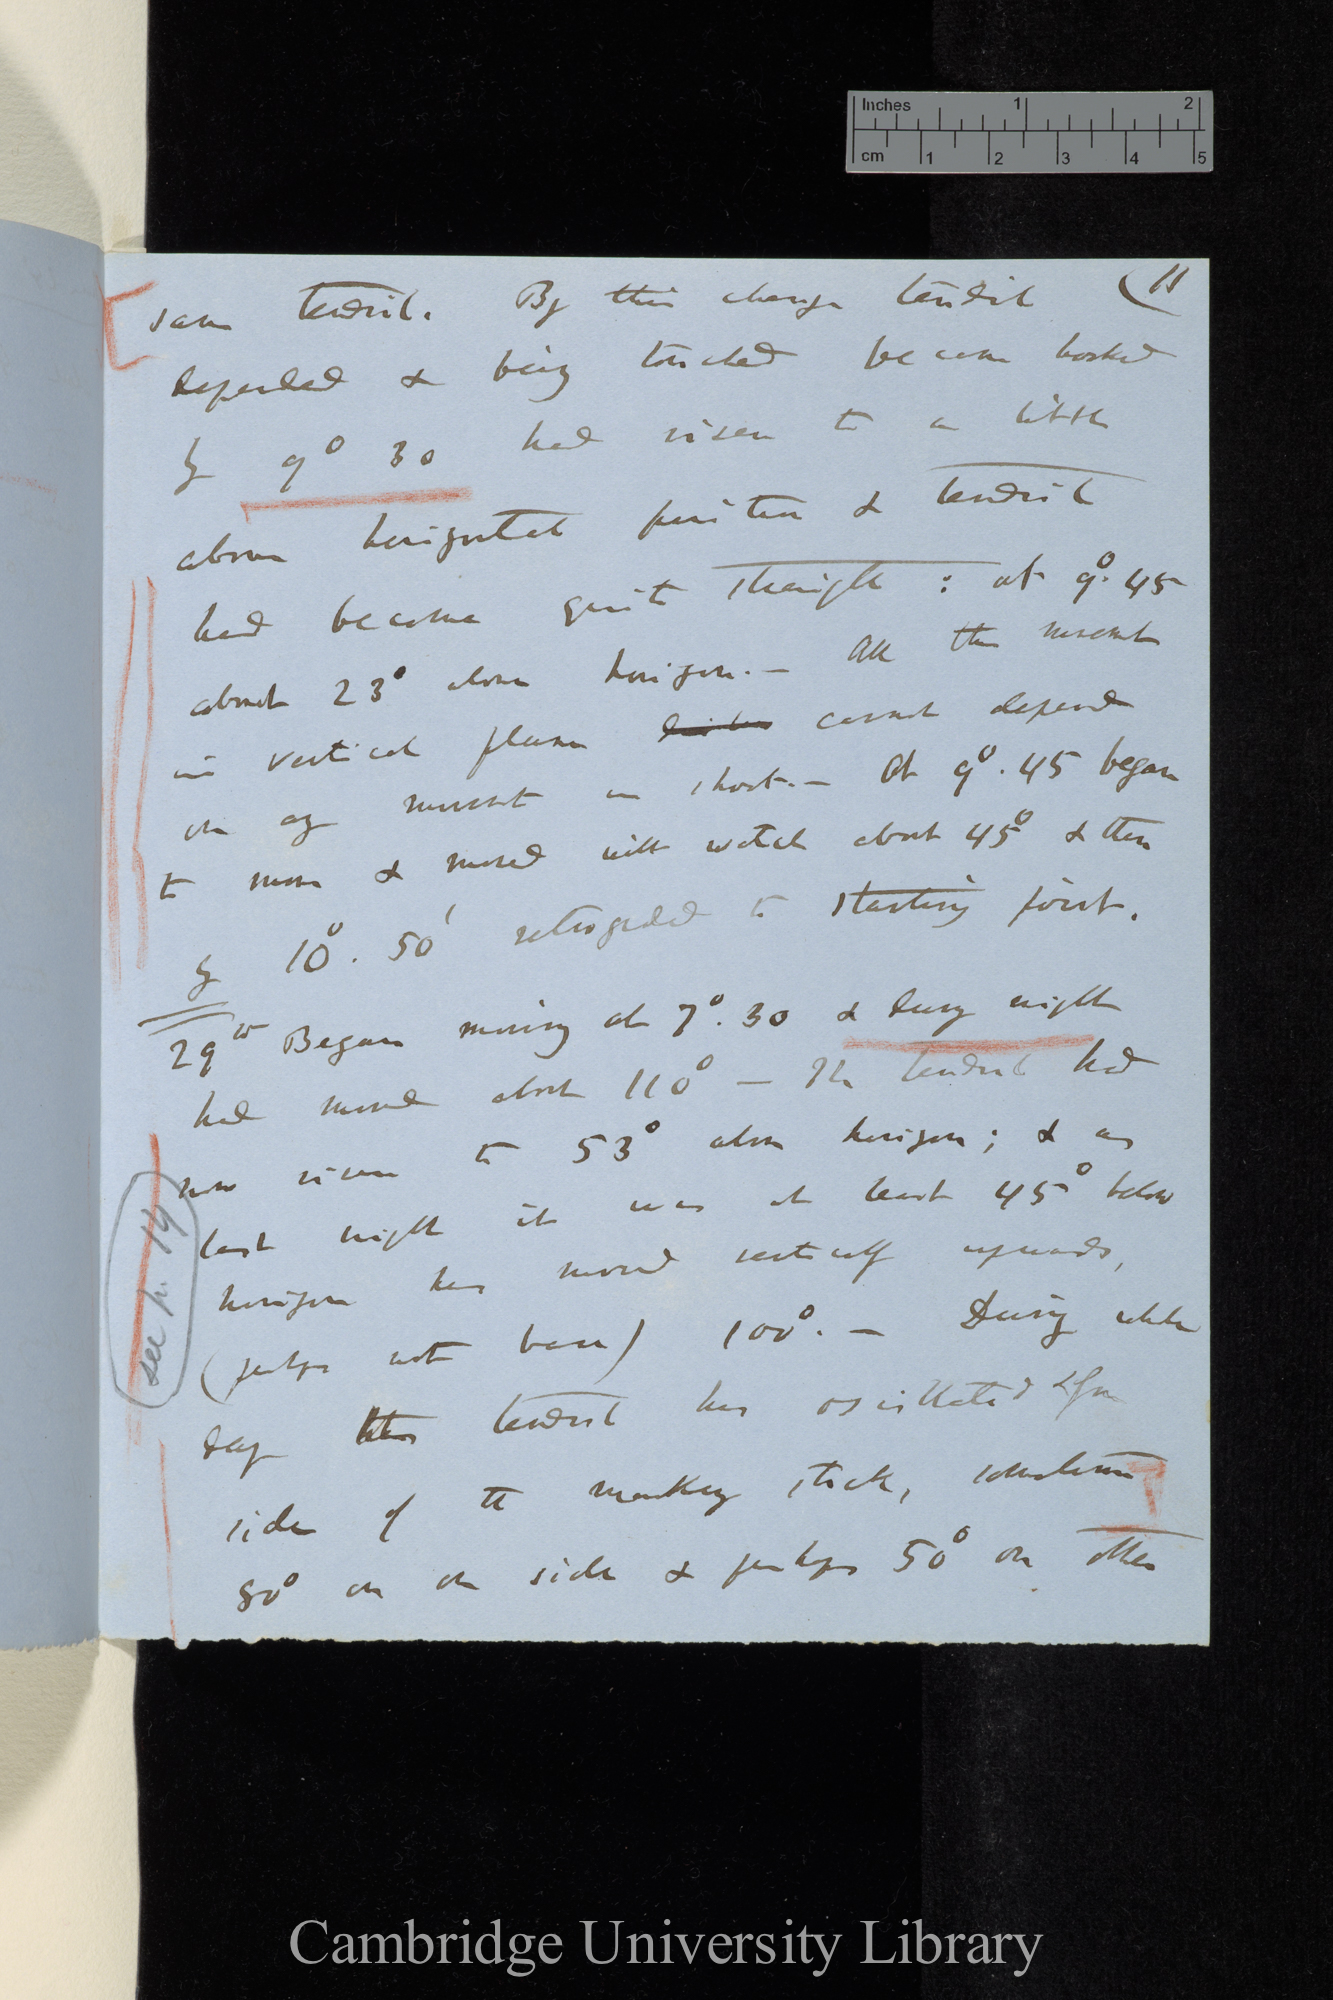 Inches 1 2
cm 1 2 3 4 5
(11
same tendril. By this change tendril
depended & being touched became hooked
by 9° 30 had risen to a little
above horizontal position & tendril
had become quite straight : at 9°. 45
about 23° above horizon. — All this movement
in vertical plane cannot depend
on any movement in shoot. — At 9°. 45 began
to move & moved with watch about 45° & then
by 10°. 50' retrograded to starting point.
29th Began moving at 7°. 30 & during night
had moved about 110° — The tendril had
now risen to 53° above horizon; & as
last night it was at least 45° below
horizon has moved vertically upwards,
(perhaps not base) 100°. — During whole
day tendril has oscillated
side of the stick, sometimes
80° on one side & perhaps 50° on other
see p. 14
Cambridge University Library